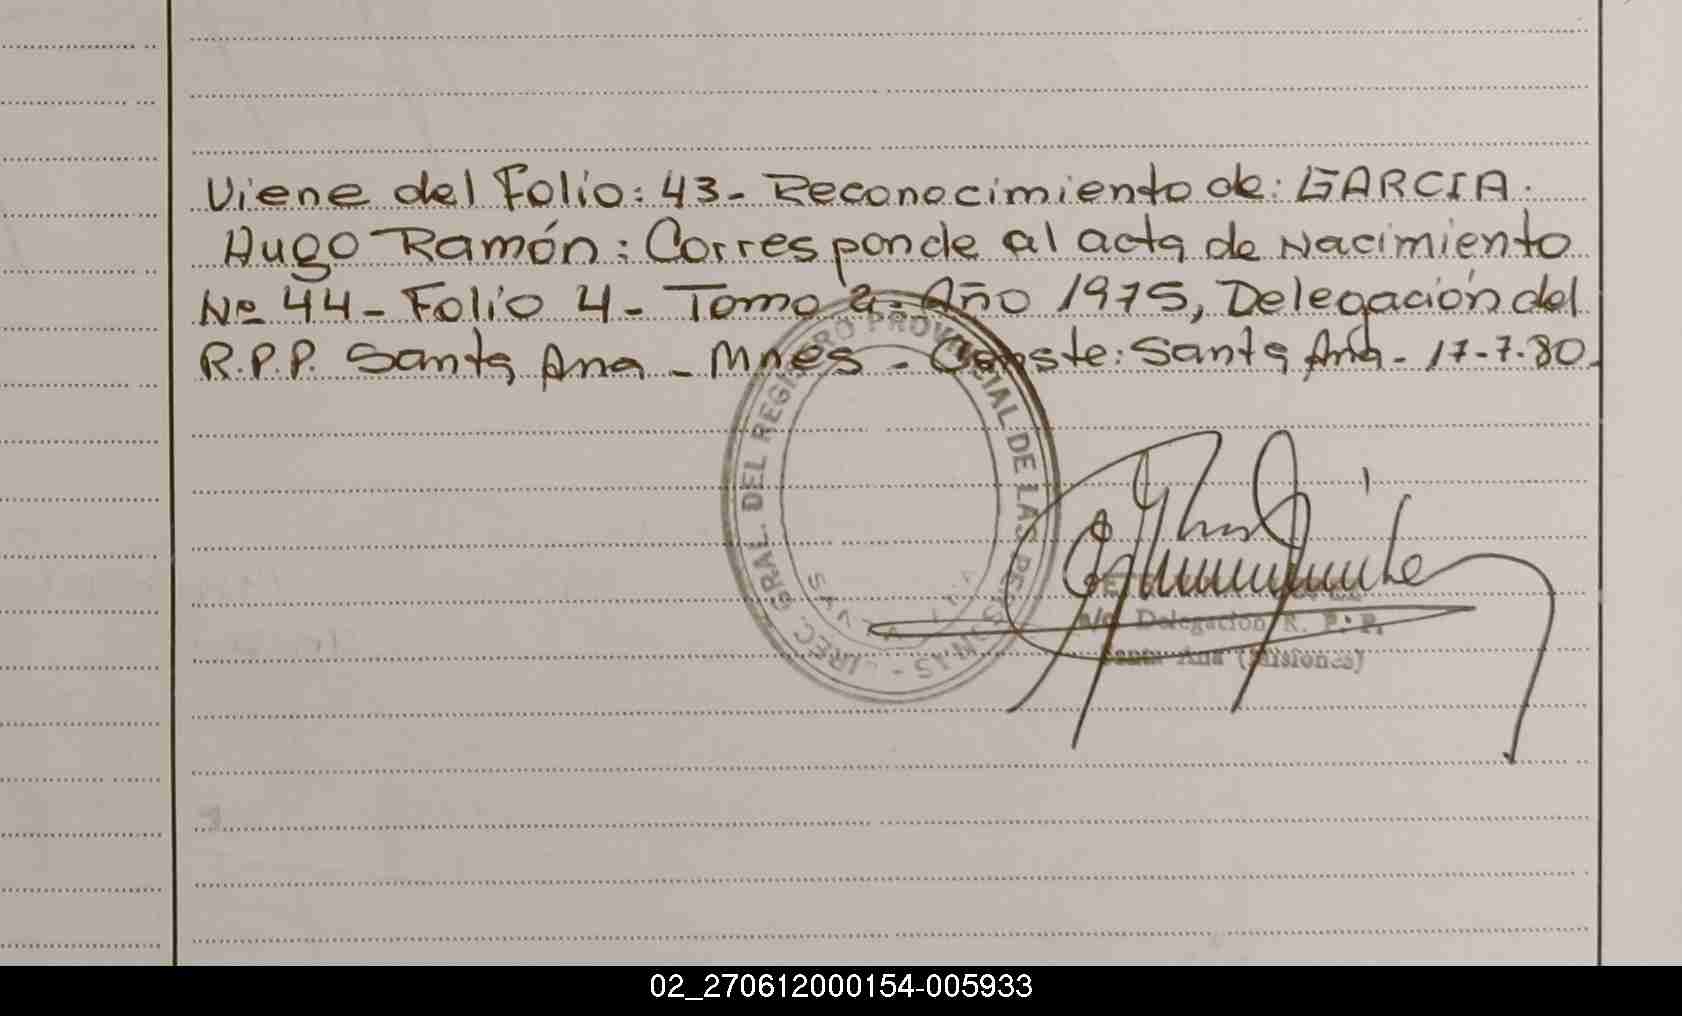 Viene del Folio: 43- Reconocimiento de: GARCIA.
Hugo Ramón: Corresponde al acta de Nacimiento
Nº 44- Folio 4- Tomo 2- Año 1975, Delegación del
R.P.P. Santa Ana - Mnes - Conste: Santa Ana - 17-7-80.
DIREC. GRAL. DEL REGISTRO PROVINCIAL DE LAS PERSONAS -
SANTA ANA
a/c Delegación R. P. P.
Santa Ana (Misiones)
02_270612000154-005933